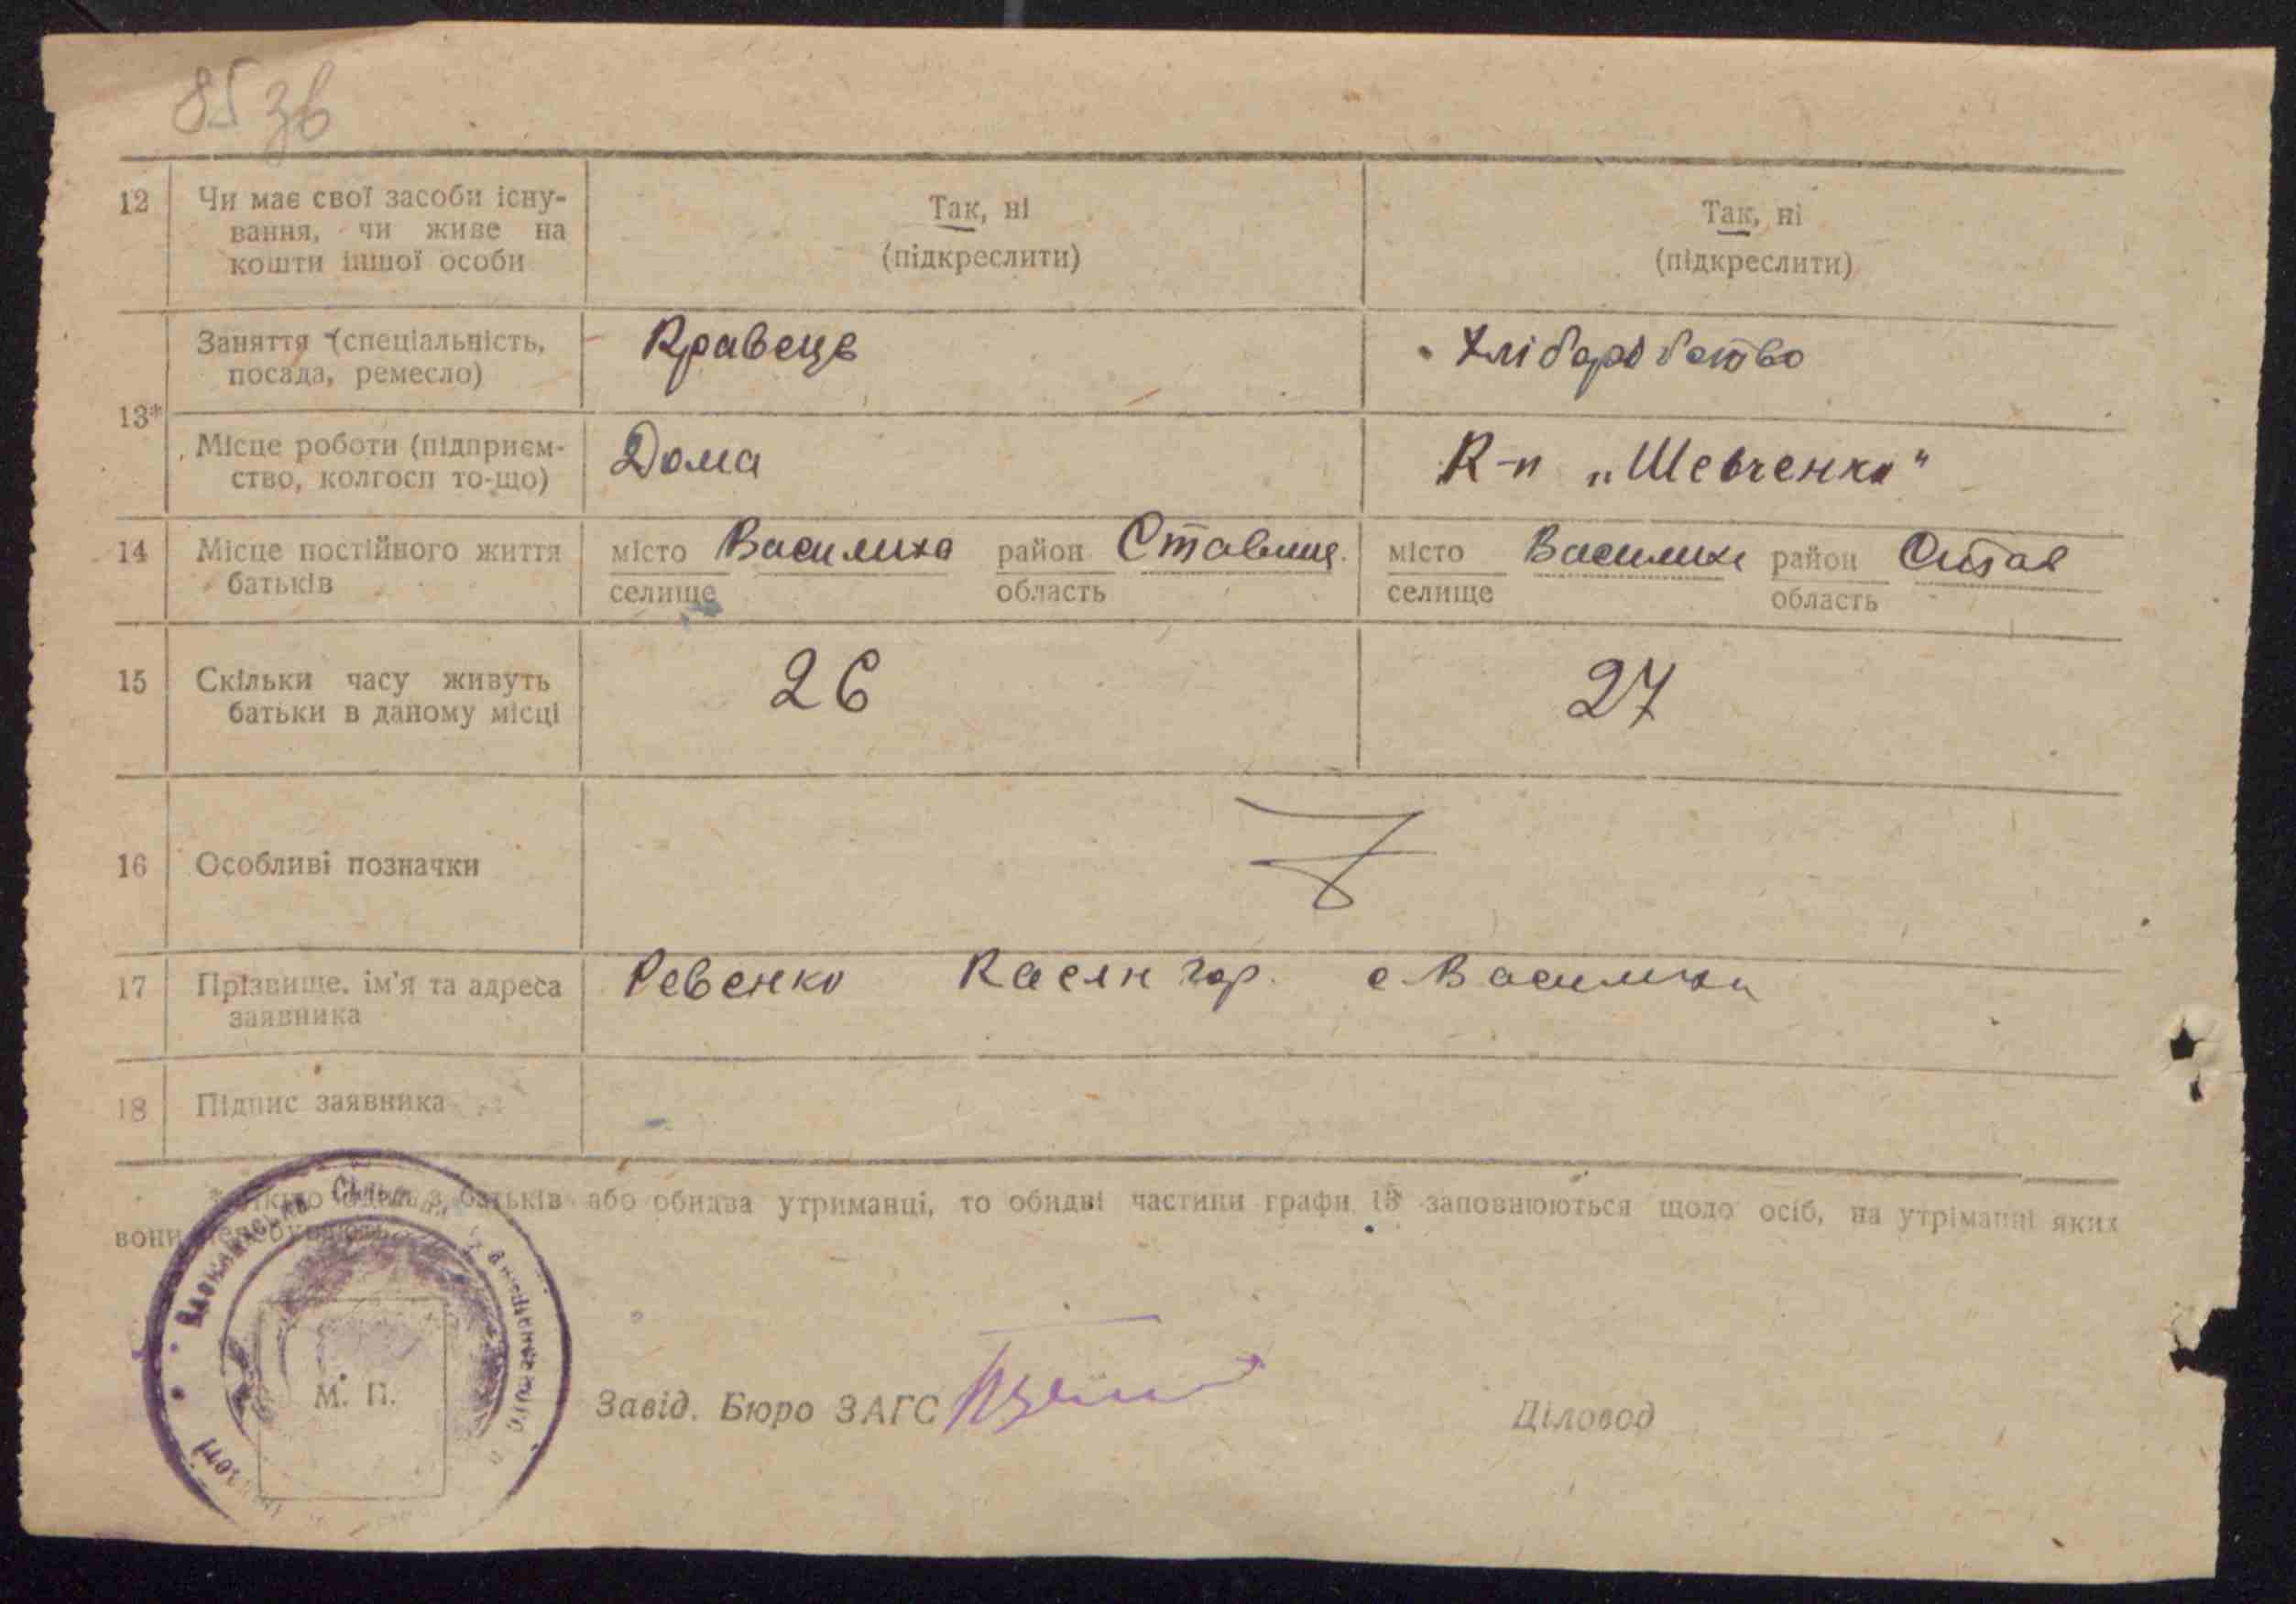 85 зв
12 Чи має свої засоби існу- Так, ні Так, ні
вання, чи живе на (підкреслити) (підкреслити)
кошти іншої особи
Заняття (спеціальність, Кравець Хліборобство
посада, ремесло)
13*
Місце роботи (підприєм- Дома К-п „Шевченка"
ство, колгосп то-що)
14 Місце постійного життя місто Василиха район Ставищ. місто Василиха район Став
батьків селище область селище область
15 Скільки часу живуть 26 27
батьки в даному місці
16 Особливі позначки
17 Прізвище, ім'я та адреса Ревенко Касян Гор. с Василиха
заявника
18 Підпис заявника
* Якщо один з батьків або обидва утриманці, то обидві частини графи 13 заповнюються щодо осіб, на утріманні яких
вони перебувають.
М. П.
Завід. Бюро ЗАГС
Діловод